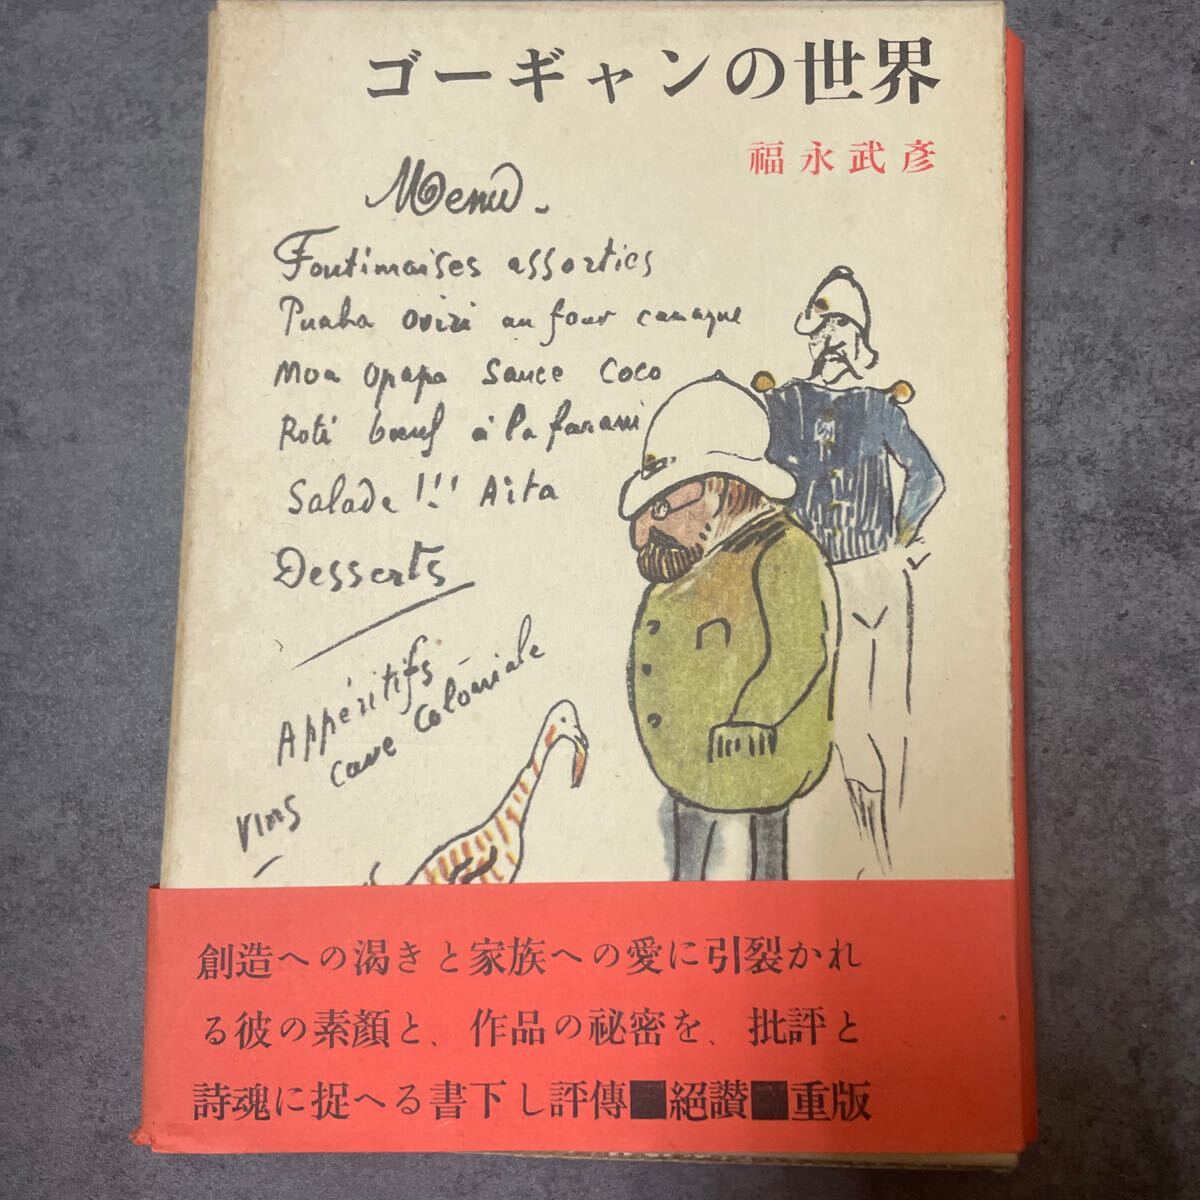 ゴーギャンの世界
福永武彦
Menu.
Foutimaises assorties
Puaka oviri au four canaque
Moa opapa sauce coco
Roti bœuf à la farani
Salade !!! Aita
Desserts
Appéritifs
Vins cave coloniale
創造への渇きと家族への愛に引裂かれ
る彼の素顔と、作品の秘密を、批評と
詩魂に捉へる書下し評傳■絕讃■重版